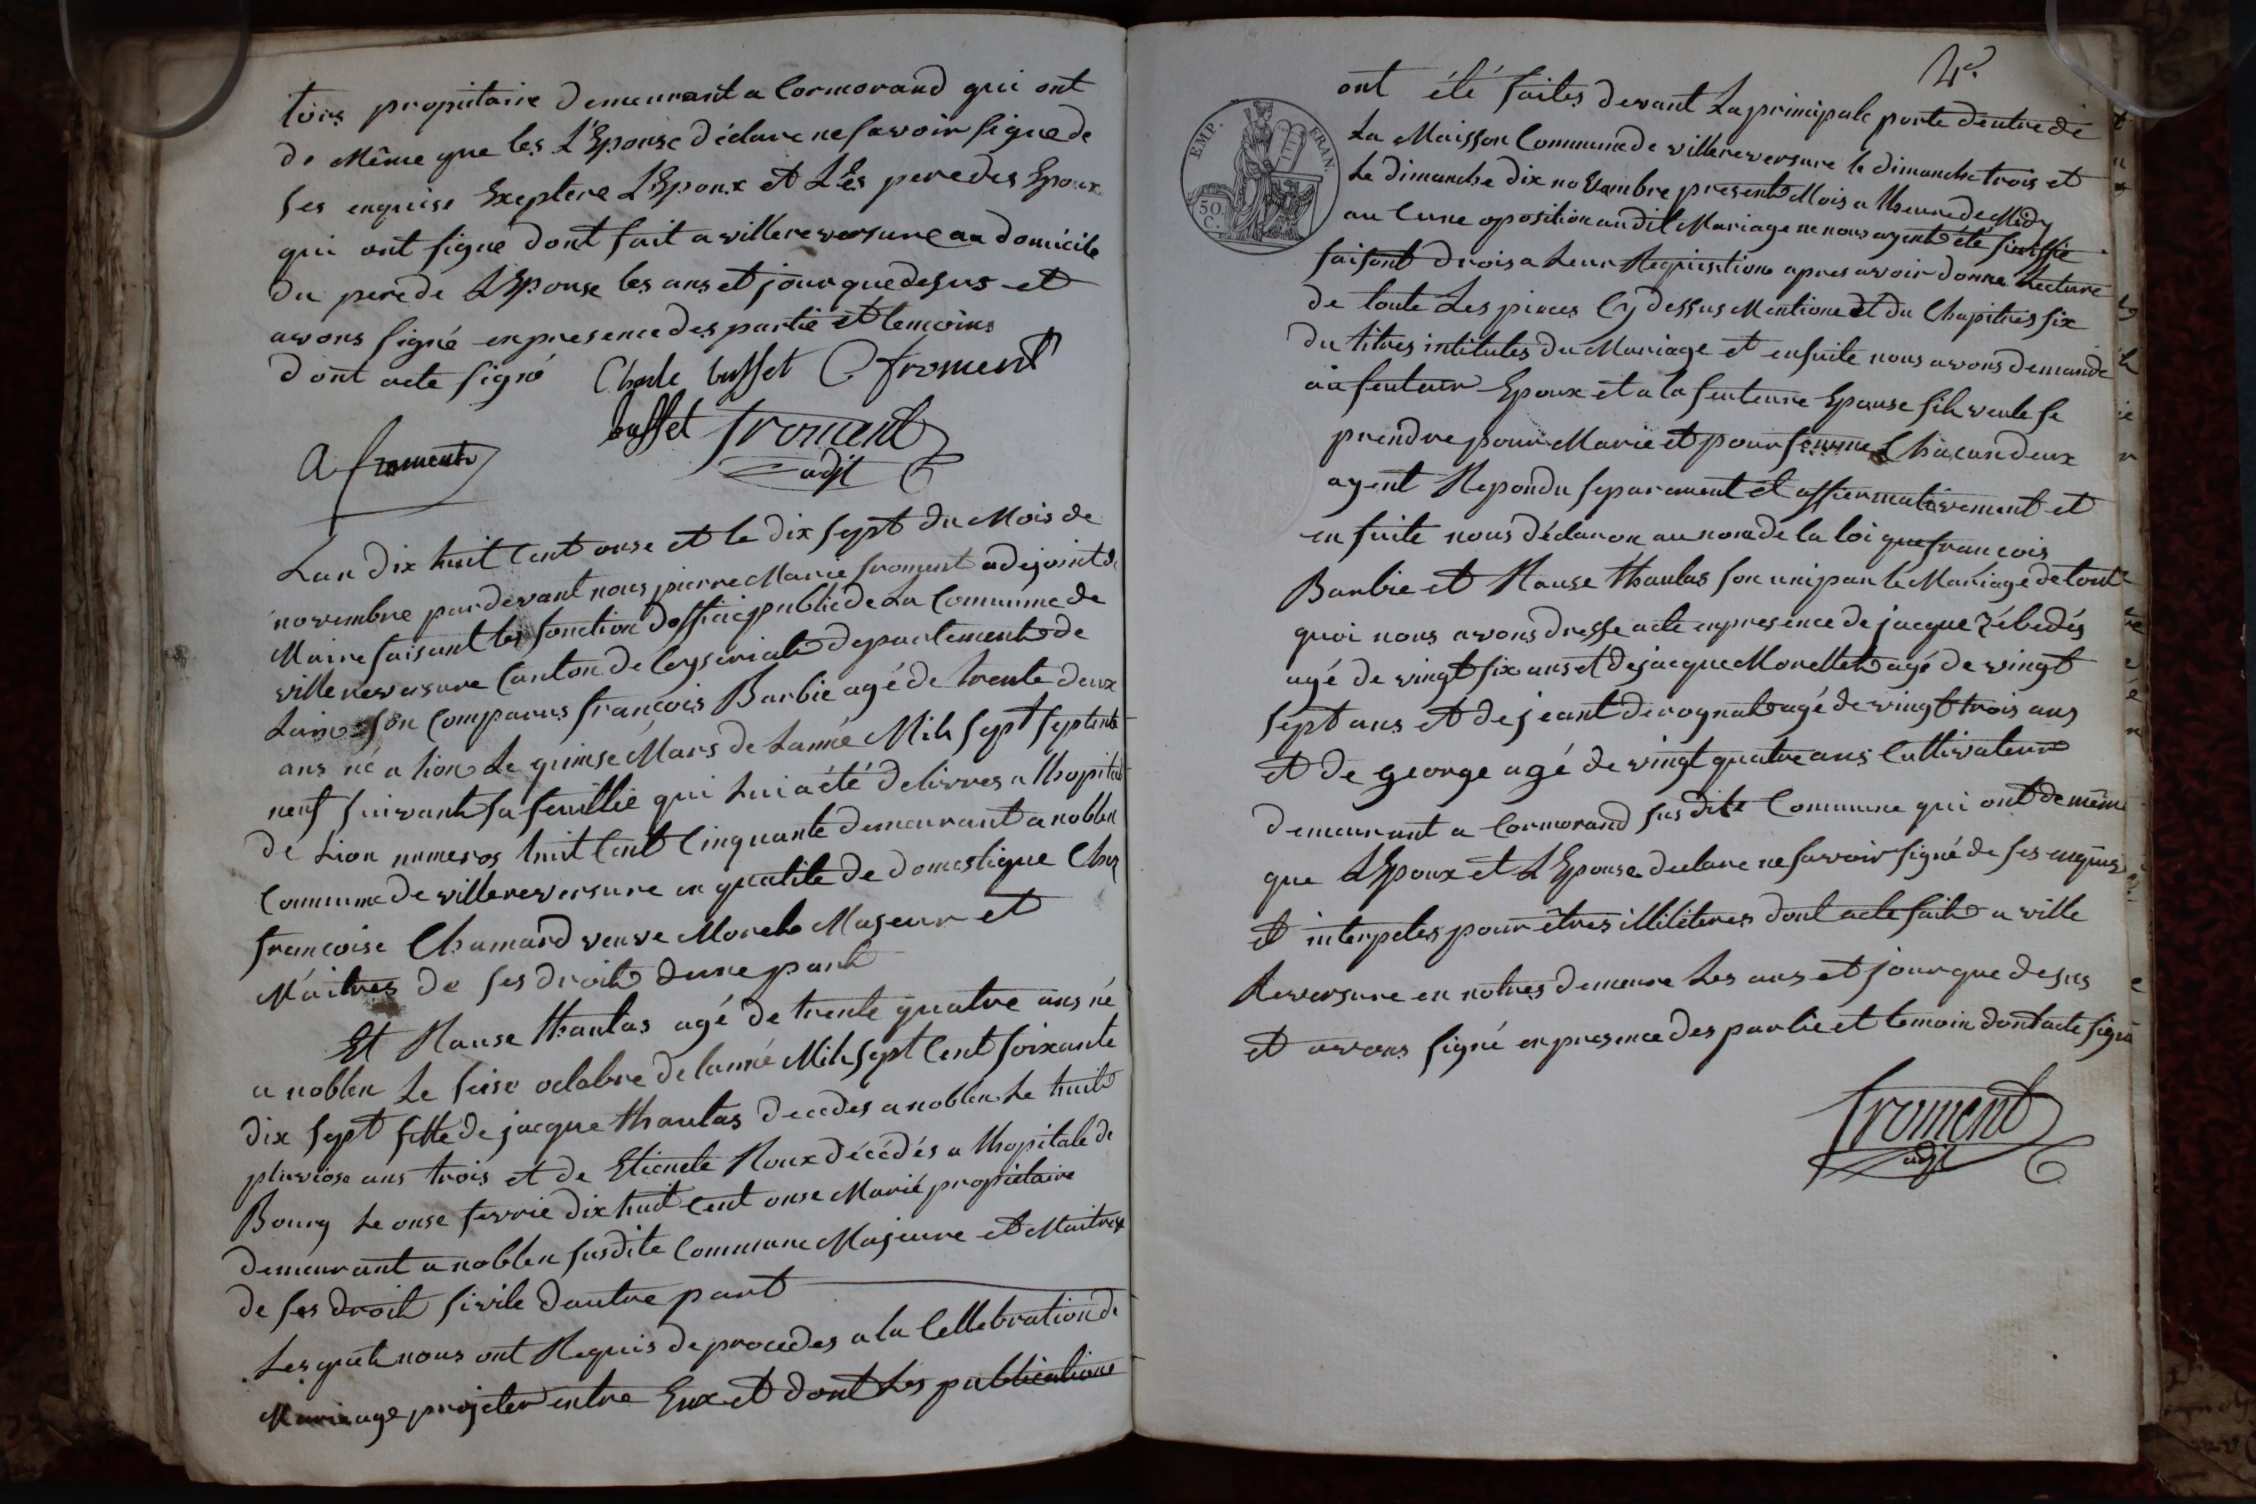 tois propietaire demeurant a Cormorand qui ont
de Même que les L'Epouse déclare ne savoir signe de
ses enquise Exeptere L'Epoux et Les pere des Epoux
qui ont signe dont fait a villereversure au domicile
du pere de L'Epouse les ans et jour que desus et
avons signé en presence des partie et temoins
dont acte signé Charle buffet C froment
buffet froment
A froment adjt
Lan dix huit Cent onse et le dix sept du Mois de
novembre par devant nous pierre Marie froment adejoint de
Maire faisant les fonction dofficie public de La Commune de
villereversure Canton de Ceyseriat departement de
Lain son Comparus françois Barbie agé de trente deux
ans né a lion Le quinse Mars de Lanné Mil sept septente
neuf suivant sa feuillie qui Lui a été delivres a lhopital
de Lion numeros huit Cent Cinquante demeurant a noblen
Commune de villereversure en qualité de domestique Chez
françoise Chamard veuve Morel Majeur et
Maitres de ses droit dune part
Et Rause thaulas agé de trente quatre ans né
a noblen Le seise octobre de lanné Mil sept Cent soixante
dix sept fille de jacque thaulas decedes a noblen Le huit
pluviose ans trois et de Etienete Roux décédés a lhopitale de
Bourg Le onse fevrie dix huit Cent onse Marié propietaire
demeurant a noblen susdite Commune Majeure et Maitres
de ses droit sivile dautre part
Lesquels nous ont Requis de procedes a la Cellebration de
Mariage projeter entre Eux et dont Les publications
4e.
ont été faites devant La principale porte dentre de
La Maisson Commune de villereversure le dimanche trois et
Le dimanche dix novembre present Mois a lheure de Midy
EMP. FRAN.
50. C.
au Cune oposition au dit Mariage ne nous ayent été sinifiie
faisant drois a Leur Requisition apres avoir donne Lecture
de toute Les pieces Cy dessus Mentione et du Chapitres six
du titres intitules du Mariage et ensuite nous avons demande
au feuteur Epoux et a la feuteure Epouse sil veule se
prendre pour Marie et pour femme Chacun deux
ayent Repondu separament et affiermativement et
en suite nous déclaron au nom de la loi que francois
Barbie et Rause thaulas son uni par le Mariage de tout
quoi nous avons dresse acte en presence de jacque zébedés
agé de vingt six ans et de jacque Morellet agé de vingt
sept ans et de jeant derognat agé de vingt trois ans
et de george agé de vingt quatre ans Cultivateur
demeurant a Cormorand susdite Commune qui ont de même
que L'Epoux et L'Epouse declare ne savoir signé de ses enquis
et interpeles pour êtres illiteres dont acte fait a ville
Reversure en notres demeure Les ans et jour que desus
et avons signé en presence des partie et temoin dont acte signé
froment
adjt